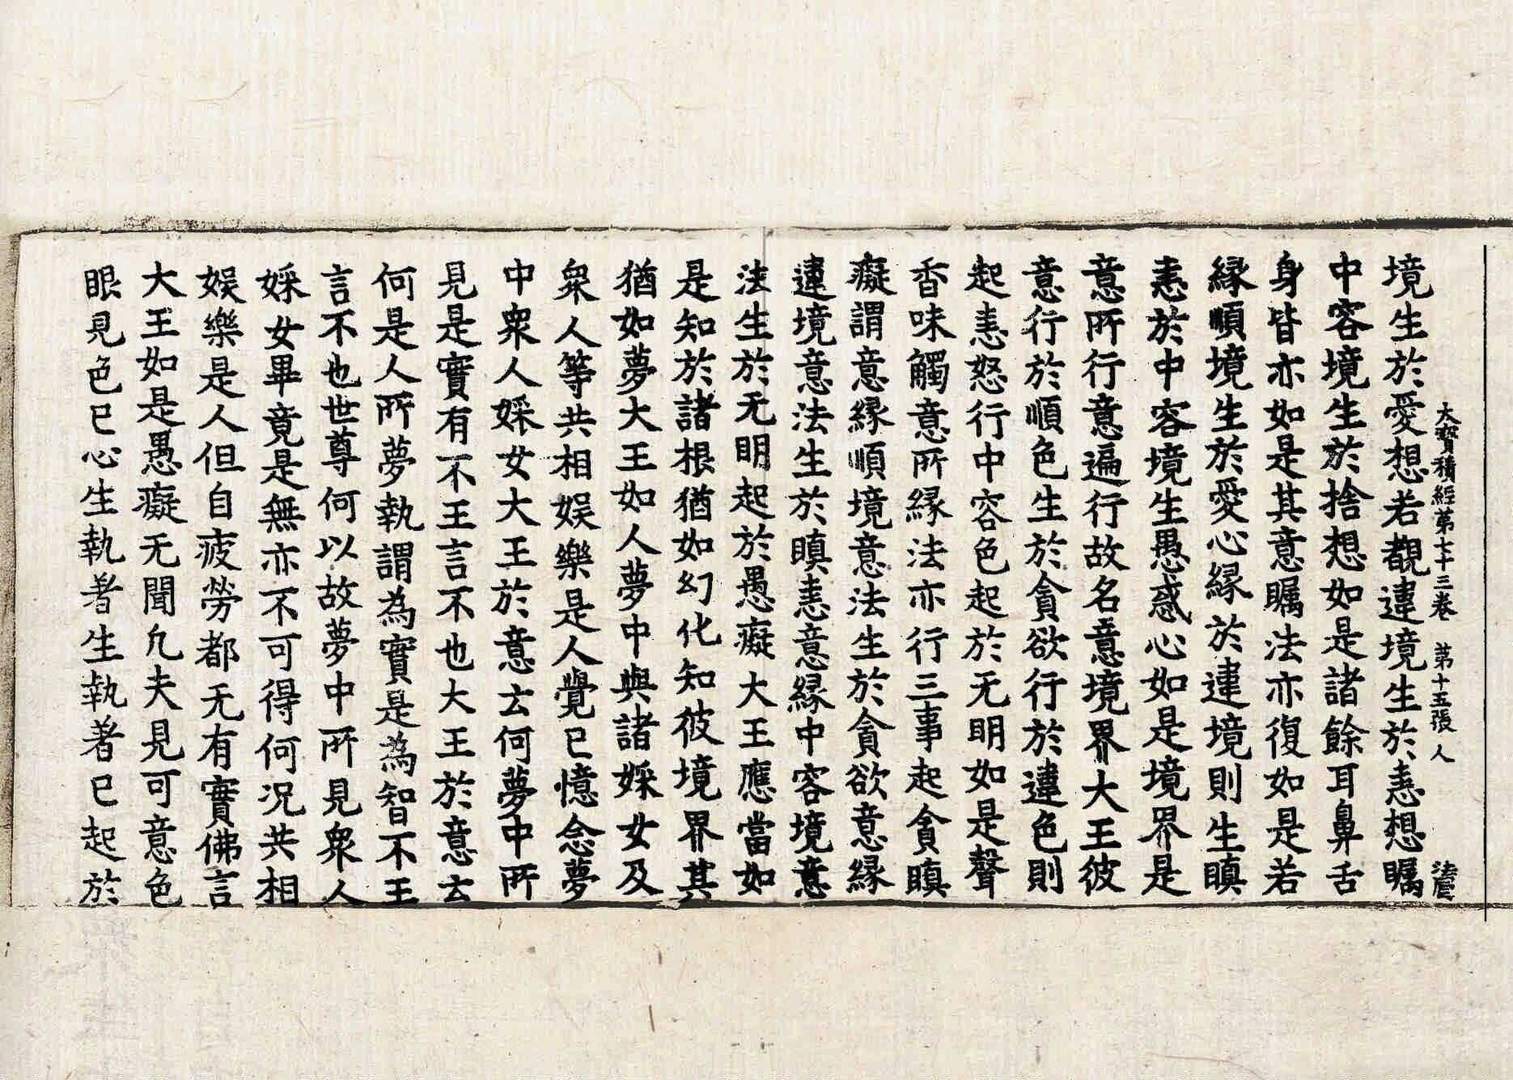 大寶積經第七十三卷　第十五張　人
境生於愛想若觀違境生於恚想矚
中容境生於捨想如是諸餘耳鼻舌
身皆亦如是其意矚法亦復如是若
縁順境生於愛心縁於違境則生瞋
恚於中容境生愚惑心如是境界是
意所行意遍行故名意境界大王彼
意行於順色生於貪欲行於違色則
起恚怒行中容色起於无明如是聲
香味觸意所縁法亦行三事起貪瞋
癡謂意縁順境意法生於貪欲意縁
違境意法生於瞋恚意縁中容境意
法生於无明起於愚癡大王應當如
是知於諸根猶如幻化知彼境界其
猶如夢大王如人夢中與諸婇女及
衆人等共相娯樂是人覺已憶念夢
中衆人婇女大王於意云何夢中所
見是實有不王言不也大王於意云
何是人所夢執謂為實是為智不王
言不也世尊何以故夢中所見衆人
婇女畢竟是無亦不可得何況共相
娯樂是人但自疲勞都无有實佛言
大王如是愚癡无聞凢夫見可意色
眼見色已心生執著生執著已起於